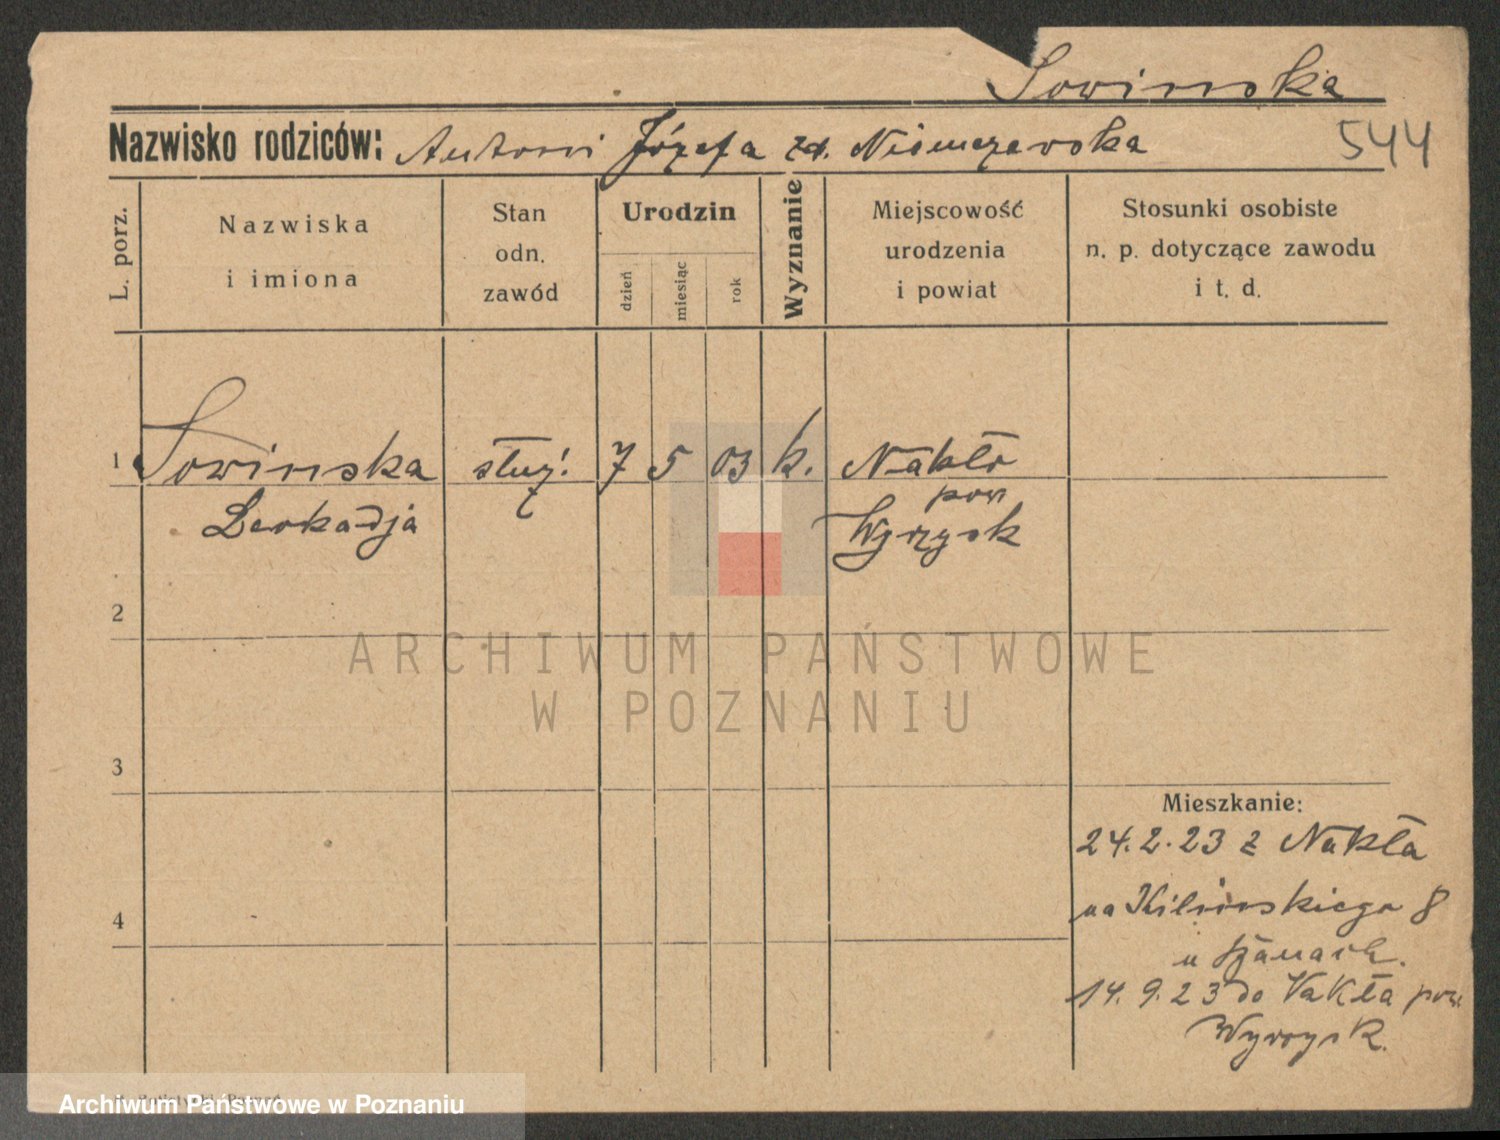 Sowinska
Nazwisko rodziców: Antoni Józefa zd. Niemczewska
544
L. porz.
Nazwiska
i imiona
Stan
odn.
zawód
Urodzin
dzień
miesiąc
rok
Wyznanie
Miejscowość
urodzenia
i powiat
Stosunki osobiste
n. p. dotyczące zawodu
i t. d.
1 Sowinska służ. 7 5 03 k. Nakło
Leokadja
pow
Wyrzysk
2
ARCHIWUM PAŃSTWOWE
W POZNANIU
3
Mieszkanie:
24.2.23 z Nakła
na Kilinskiego 8
4
u
14.9.23 do Nakła pow.
Wyrzysk.
Archiwum Państwowe w Poznaniu